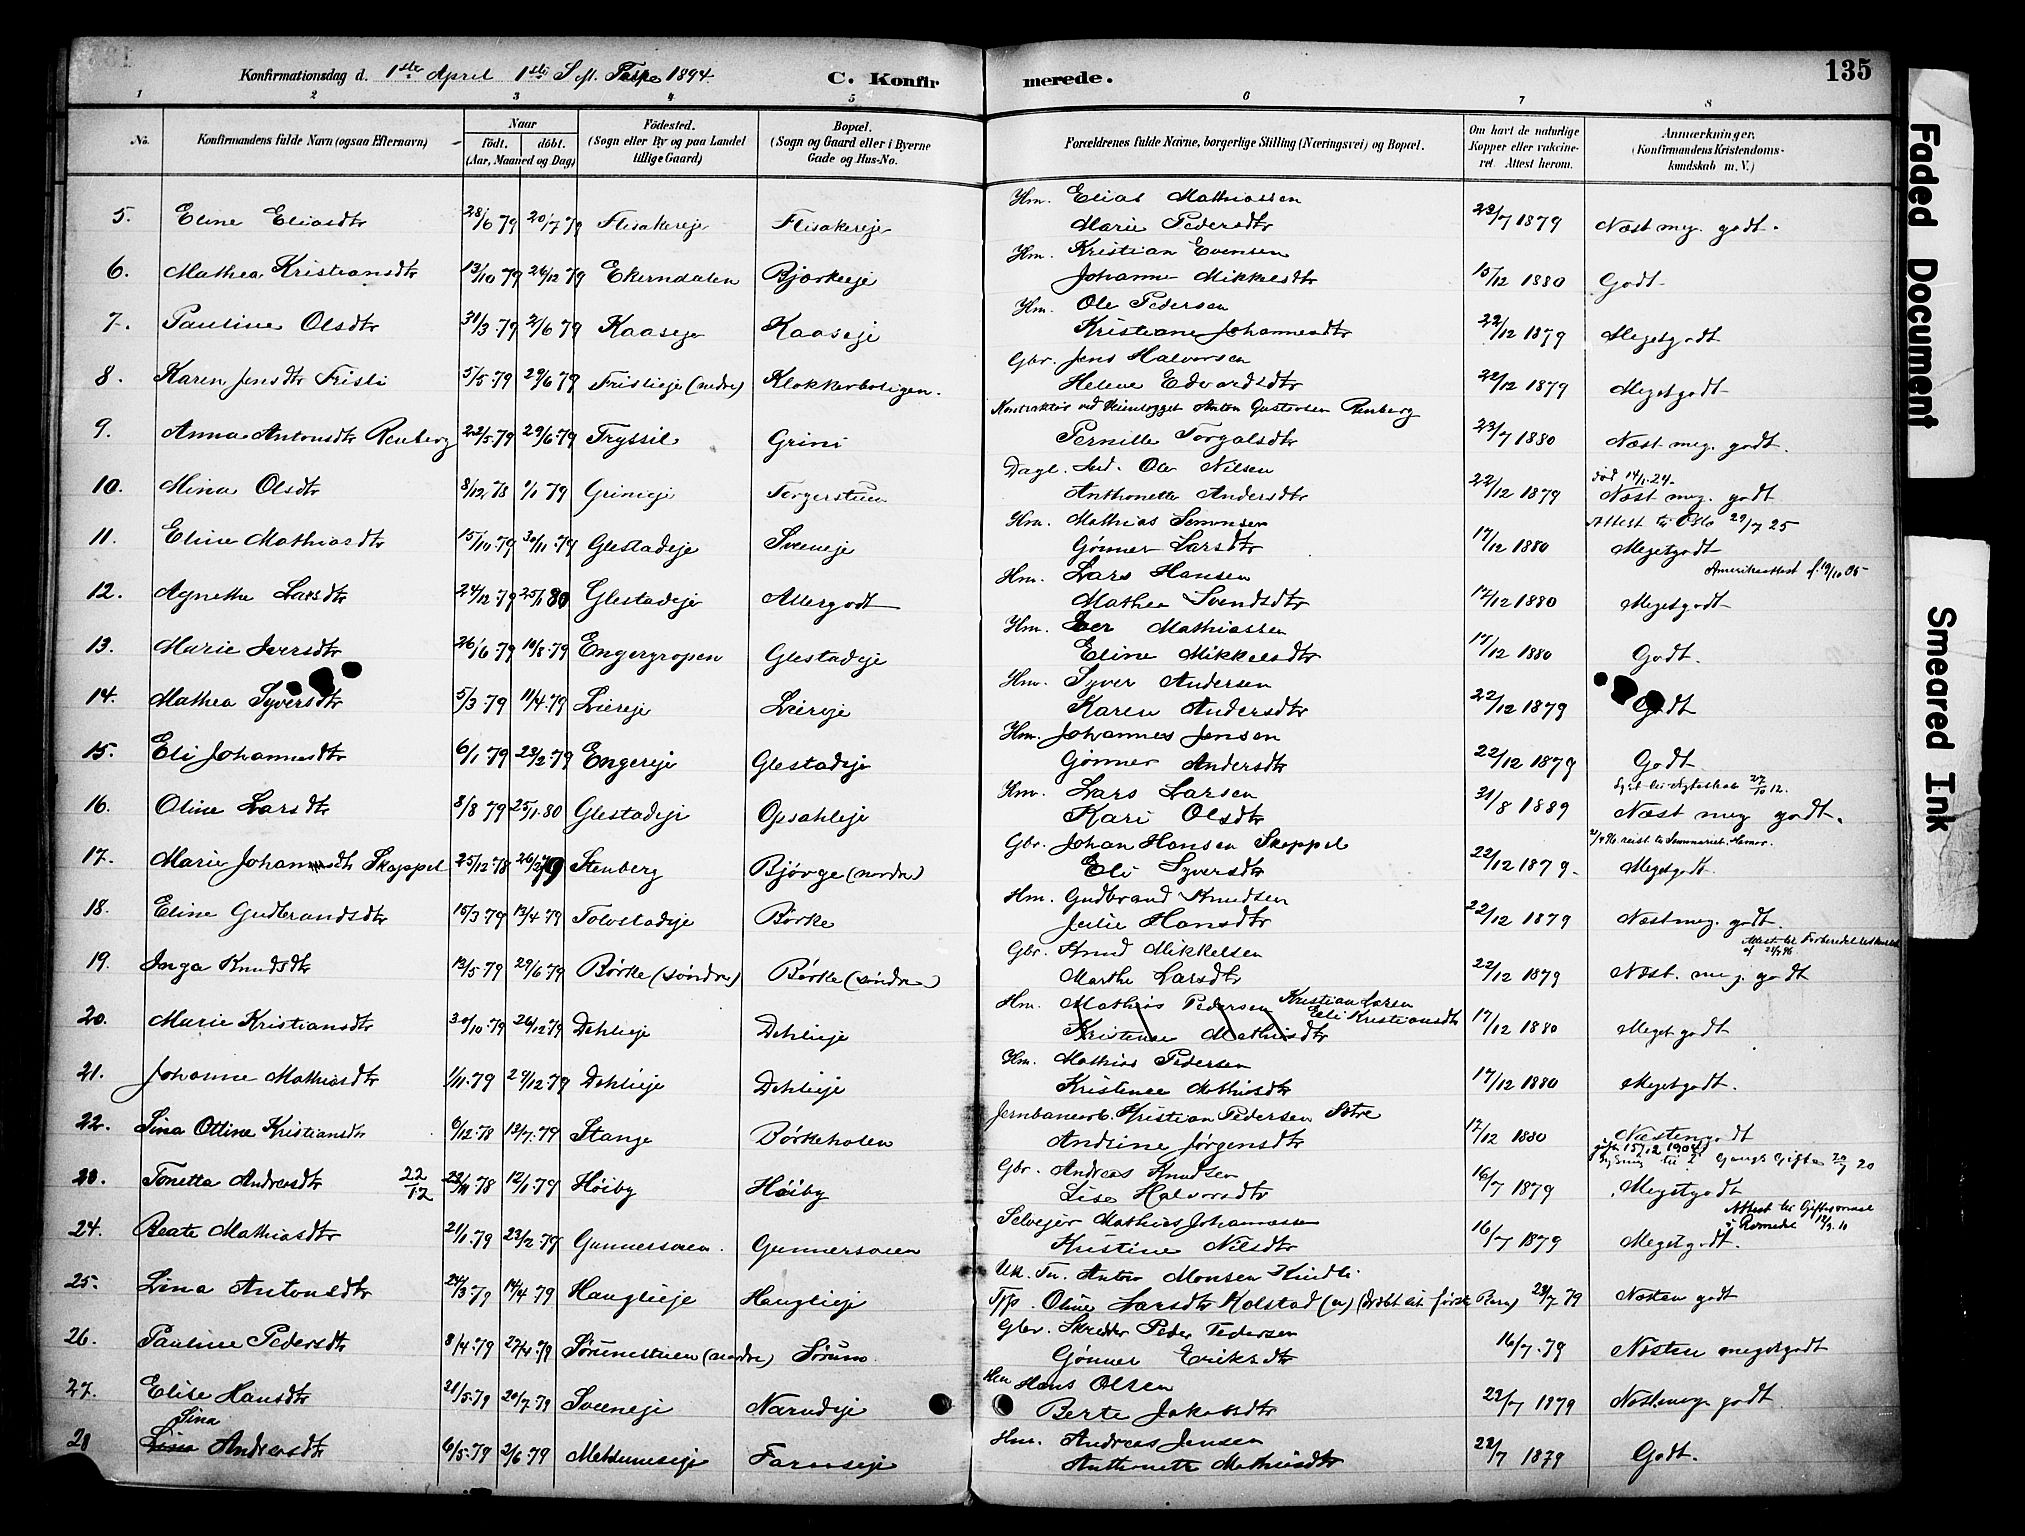 Konfirmationsdag d. 1ste April 1ste S. ft. Paaske 1894. C. Konfir merede. 135
1 2 3 4 5 6 7 8
No. Konfirmandens fulde Navn (ogsaa Efternavn) Naar født. døbt. (Aar, Maaned og Dag) Fødested. (Sogn eller By og paa Landet tillige Gaard) Bopæl. (Sogn og Gaard eller i Byerne Gade og Hus-No. Forældrenes fulde Navne, borgerlige Stilling (Næringsvei) og Bopæl. Om havt de naturlige Kopper eller vakcineret. Attest herom. Anmærkninger, (Konfirmandens Kristendomskundskab m. V.)
Hm. Elias Mathiassen
5. Eline Eliasdtr 28/6 79 20/7 79 Flisakereje Flisakereje Marie Pedersdtr 23/7 1879 Næst meg. godt.
Hm. Kristian Evensen
6. Mathea Kristiansdtr 13/10 79 26/12 79 Ekerndalen Bjørkeeje Johanne Mikkelsdtr 15/12 1880 Godt.
Hm. Ole Pedersen
7. Pauline Olsdtr 31/3 79 2/6 79 Kaaseje Kaaseje Kristiane Johannesdtr 22/12 1879 Megetgodt
Gbr. Jens Halvorsen
8. Karen Jensdtr Fristi 5/5 79 29/6 79 Fristieje (nedre) Klokkerboligen. Helene Edvardsdtr 22/12 1879 Megetgodt
Anton Gustavsen Renberg
9. Anna Antonsdtr Renberg 22/5 79 29/6 79 Tryssil Grini Pernille Torgalsdtr 23/7 1880 Næst meg. godt.
Dagl. Ole Nilsen død 14/1.24.
10. Mina Olsdtr 8/12 78 1/1 79 Grinieje Torgerstuen Anthonette Andersdtr 22/12 1879 Næst meg. godt
Hm. Mathias Simensen Attest til Oslo 29/7 25
11. Eline Mathiasdtr 15/10 79 30/11 79 Glestadeje Sveneje Gønner Larsdtr 17/12 1880 Megetgodt
Hm. Lars Hansen Amerikaattest f. 19/10 05
12. Agnethe Larsdtr 24/12 79 25/1 80 Glestadeje Allergodt Mathea Svendsdtr 17/12 1880 Megetgodt
Hm. Iver Mathiassen
13. Marie Iversdtr 26/6 79 10/8 79 Engergropen Glestadeje Eline Mikkelsdtr 17/12 1880 Godt.
Hm. Syver Andersen
14. Mathea Syversdtr 5/3 79 11/4 79 Liereje Liereje Karen Andersdtr 22/12 1879 Godt
Hm. Johannes Jensen
15. Eli Johannesdtr 6/1 79 23/2 79 Engereje Glestadeje Gønner Andersdtr 22/12 1879 Godt
Hm. Lars Larsen 27/10 12.
16. Oline Larsdtr 8/8 79 25/1 80 Glestadeje Opsahleje Kari Olsdtr 31/8 1889 Næst meg godt.
Gbr. Johan Hansen Skappel reist til Seminariet Hamar.
17. Marie Johansdtr Skappel 25/12 78 26/2 79 Stenberg Bjørge (nordre) Eli Syversdtr 22/12 1879. Megetgodt.
Hm. Gudbrand Knudsen
18. Eline Gudbrandsdtr 15/3 79 13/4 79 Tolvstadeje Børke Julie Hansdtr 22/12 1879 Næst meg. godt.
Gbr. Knud Mikkelsen Attest til
19. Inga Knudsdtr 13/5 79 29/6 79 Børke (søndre) Børke (søndre) Marthe Larsdtr 22/12 1879 Næst. meg. godt
Hm. Mathias Pedersen Kristian Larsen
20. Marie Kristiansdtr 30/10 79 26/12 79 Dehlieje Dehlieje Kristence Mathisdtr Eli Kristiansdtr 17/12 1880 Meget godt
Hm. Mathias Pedersen
21. Johanne Mathiasdtr 1/11 79 26/12 79 Dehlieje Dehlieje Kristence Mathisdtr 17/12 1880 Megetgodt.
Jernbanearb. Kristian Pedersen Sætre
22. Lina Ottine Kristiansdtr 6/12 78 13/7 79 Stange Børkehosen Andrine Jørgensdtr 17/12 1880 Næsten godt
Gbr. Andreas Knudsen
23. Tonetta Andreasdtr 22/12 22/11 78 12/1 79 Høiby Høiby Lise Halvorsdtr 16/7 1879 Megetgodt
Selvejer Mathias Johannessen Attest til
24. Beate Mathiasdtr 21/1 79 23/2 79 Gunnersveen. Gunnersveen Kristine Nilsdtr 16/7 1879 Megetgodt. i Romedal 12/3 10
Uk. Tn. Anton Monsen Kindli
25. Lina Antonsdtr 24/3 79 14/4 79 Hauglieje Hauglieje Tjp. Oline Larsdtr Kolstad 23/7 79 Næsten godt
Gbr. Skredder Peder Pedersen
26. Pauline Pedersdtr 8/4 79 27/4 79 Sørumstuen (nordre) Sørum. Gønner Eriksdtr 16/7 79 Næsten megetgodt
Hm Hans Olsen
27. Elise Hansdtr 21/5 79 20/7 79 Sveeneje Narudeje Berte Jakobsdtr 22/7 1879 Næstmeg godt.
Lina Hm. Andreas Jensen
28 Andreasdtr 6/5 79 2/6 79 Farmseje Anthonette Mathisdtr 22/7 1879 Godt.
Faded Document
Smeared Ink